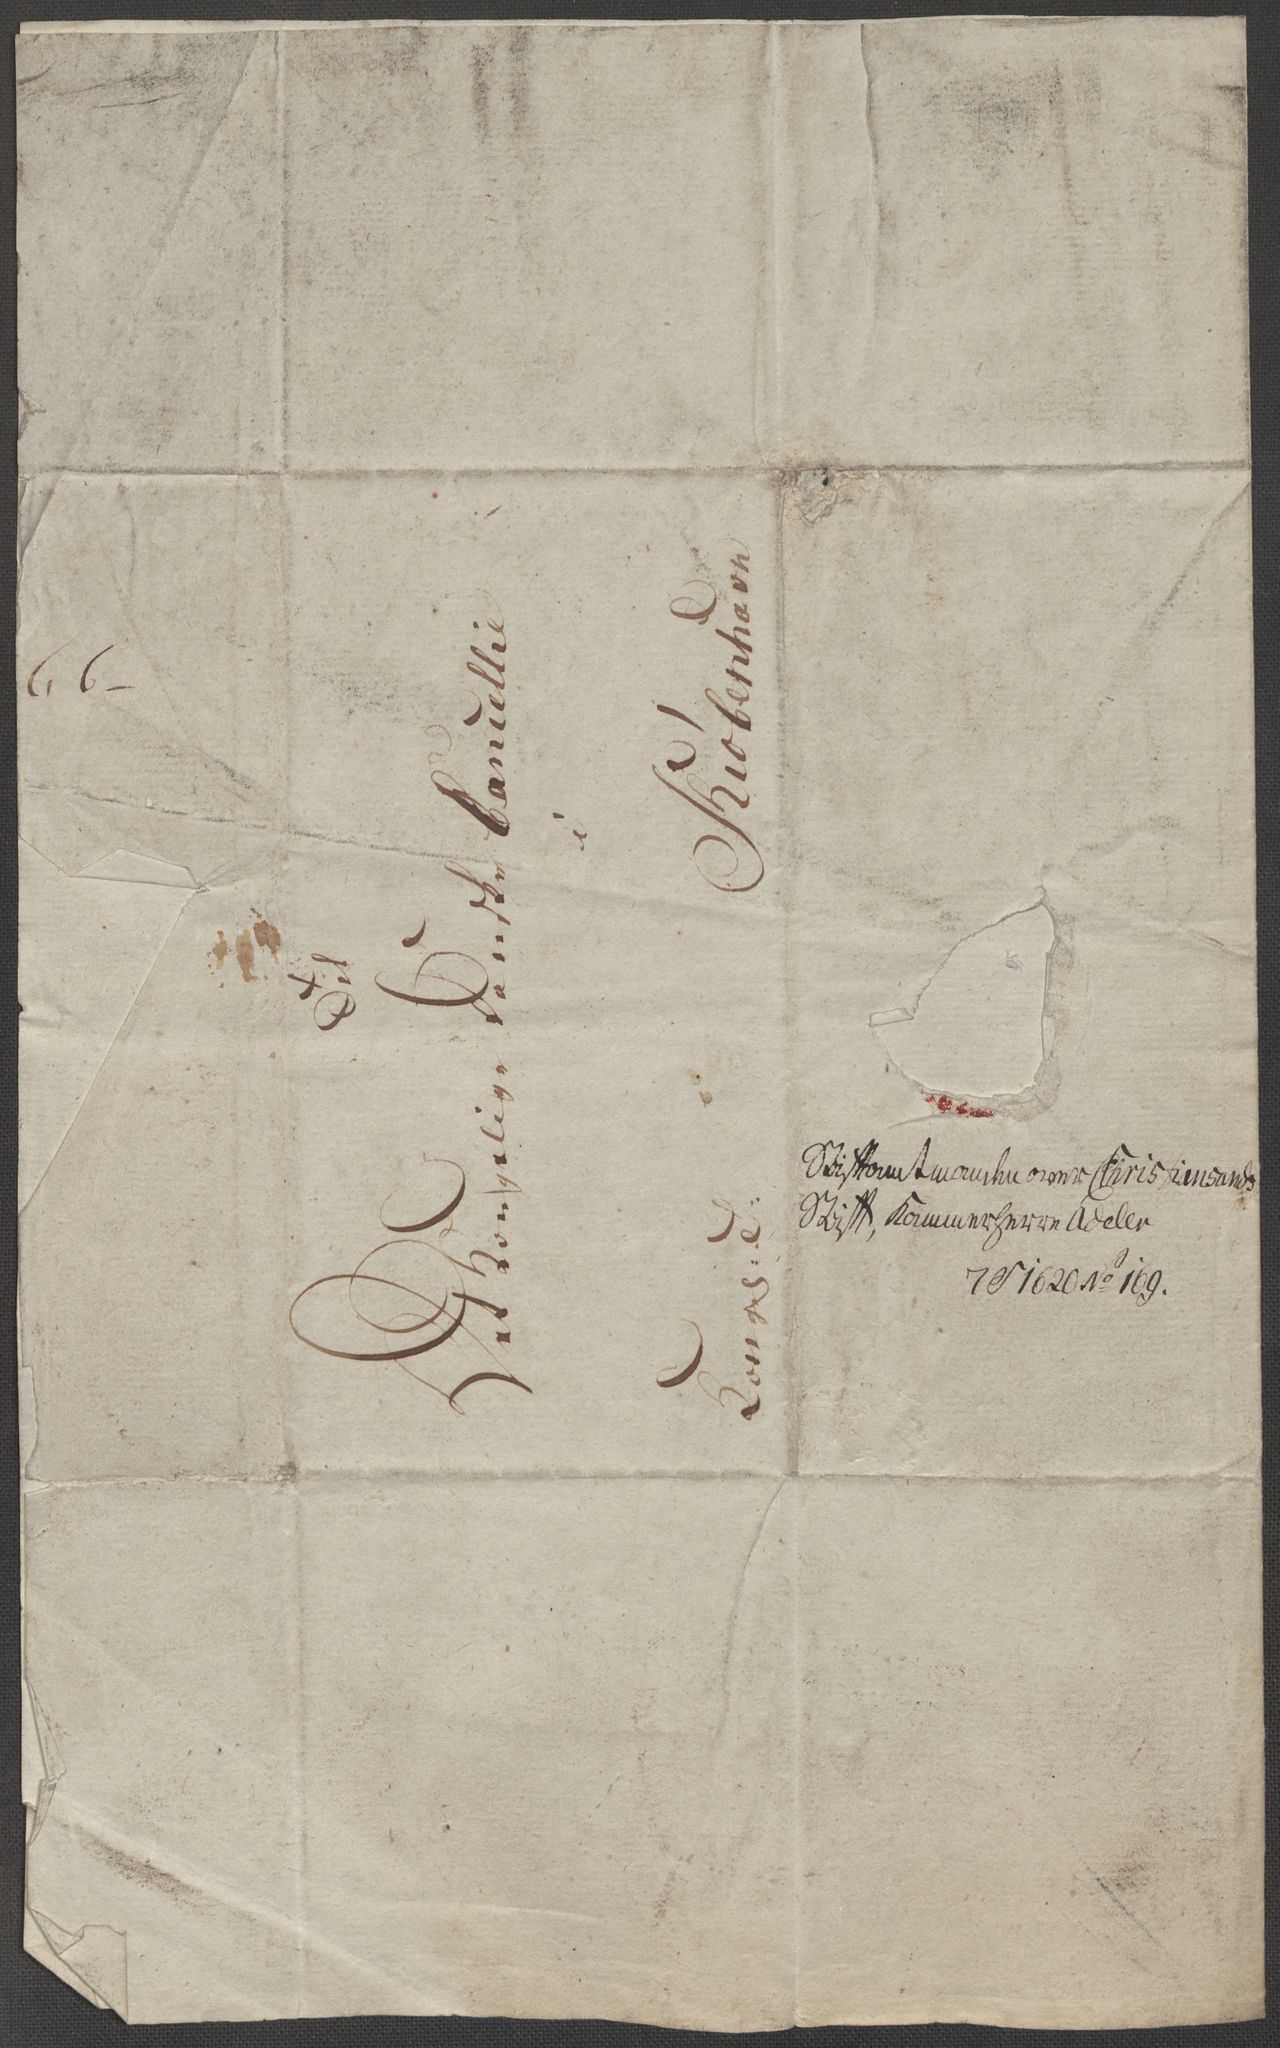 66-
Til
Det Kongelige Danske Cancellie
i
Kiøbenhavn
Kong: T:
Stiftamtmanden over Christiansands
Stift, Kammerherre Adeler
No 169.